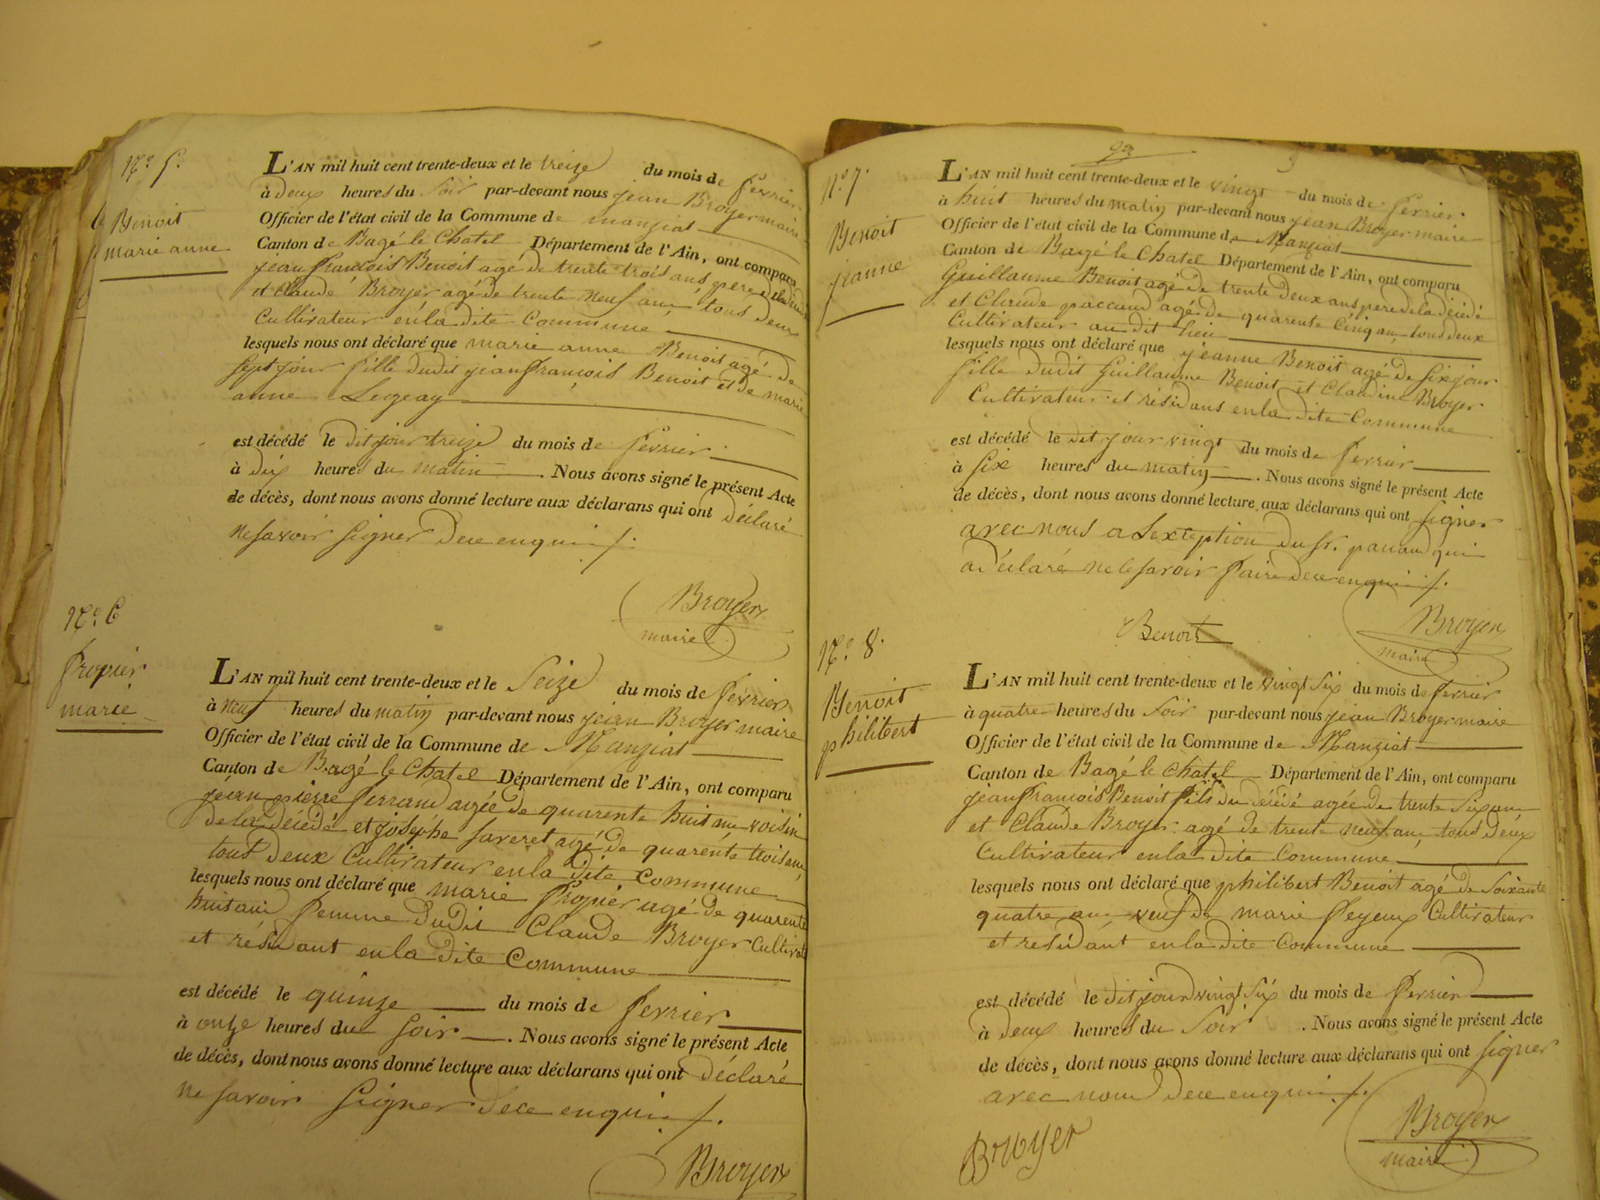 N.º 5.
Benoit
marie anne
L'AN mil huit cent trente-deux et le treize du mois de fevrier
à deux heures du soir par-devant nous jean Broyer maire
Officier de l'état civil de la Commune de manziat
Canton de Bagé le Chatel Département de l'Ain, ont comparu
jean francois Benoit agé de trente trois ans pere
et claude Broyer agé de trente neuf ans tous deux
Cultivateur en la dite Commune
lesquels nous ont déclaré que marie anne Benoit agé de
sept jour fille dudit jean françois Benoit et de marie
anne
est décédé le dit jour treize du mois de fevrier
à dix heures du matin . Nous avons signé le présent Acte
de décès, dont nous avons donné lecture aux déclarans qui ont déclaré
ne savoir signer de ce enquis
Broyer
maire
N.º 6
marie
L'AN mil huit cent trente-deux et le Seize du mois de fevrier
à neuf heures du matin par-devant nous jean Broyer maire
Officier de l'état civil de la Commune de Manziat
Canton de Bagé le Chatel Département de l'Ain, ont comparu
jean pierre ferrand agée de quarente huit ans voisin
de la décédé et josephe agé de quarente trois ans
tout deux Cultivateur en la dite Commune
lesquels nous ont déclaré que marie agé de quarente
huit ans femme dudit Claude Broyer Cultivat
et résidant en la dite Commune
est décédé le quinze du mois de fevrier
à onze heures du soir . Nous avons signé le présent Acte
de décès, dont nous avons donné lecture aux déclarans qui ont déclaré
ne savoir signer de ce enquis
Broyer
N.º 7.
Benoit
jeanne
L'AN mil huit cent trente-deux et le vingt du mois de fevrier
à huit heures du matin par-devant nous jean Broyer maire
Officier de l'état civil de la Commune de Manziat
Canton de Bagé le Chatel Département de l'Ain, ont comparu
Guillaume Benoit agé de trente deux ans pere de la décédé
et Claude paccaud agé de quarente cinq ans tous deux
Cultivateur au dit lieu
lesquels nous ont déclaré que jeanne Benoit agé de six jour
fille dudit Guillaume Benoit et Claudine Broyer
Cultivateur et résidans en la dite Commune
est décédé le dit jour vingt du mois de fevrier
à six heures du matin . Nous avons signé le présent Acte
de décès, dont nous avons donné lecture aux déclarans qui ont signer
avec nous a Lexteption du Sr. paccaud qui
a déclaré ne le savoir faire de ce enquis
Benoit
Broyer
maire
N.º 8.
Benoit
philibert
L'AN mil huit cent trente-deux et le vingt six du mois de fevrier
à quatre heures du soir par-devant nous jean Broyer maire
Officier de l'état civil de la Commune de Manziat
Canton de Bagé le Chatel Département de l'Ain, ont comparu
jean francois Benoit fils du décédé agée de trente six ans
et Claude Broyer agé de trente neuf ans tous deux
Cultivateur en la dite Commune
lesquels nous ont déclaré que philibert Benoit agé de soixante
quatre ans veuf de marie feyeux Cultivateur
et residant en la dite Commune
est décédé le dit jour vingt six du mois de fevrier
à deux heures du soir . Nous avons signé le présent Acte
de décès, dont nous avons donné lecture aux déclarans qui ont signer
avec nous de ce enquis
Broyer
Broyer
maire